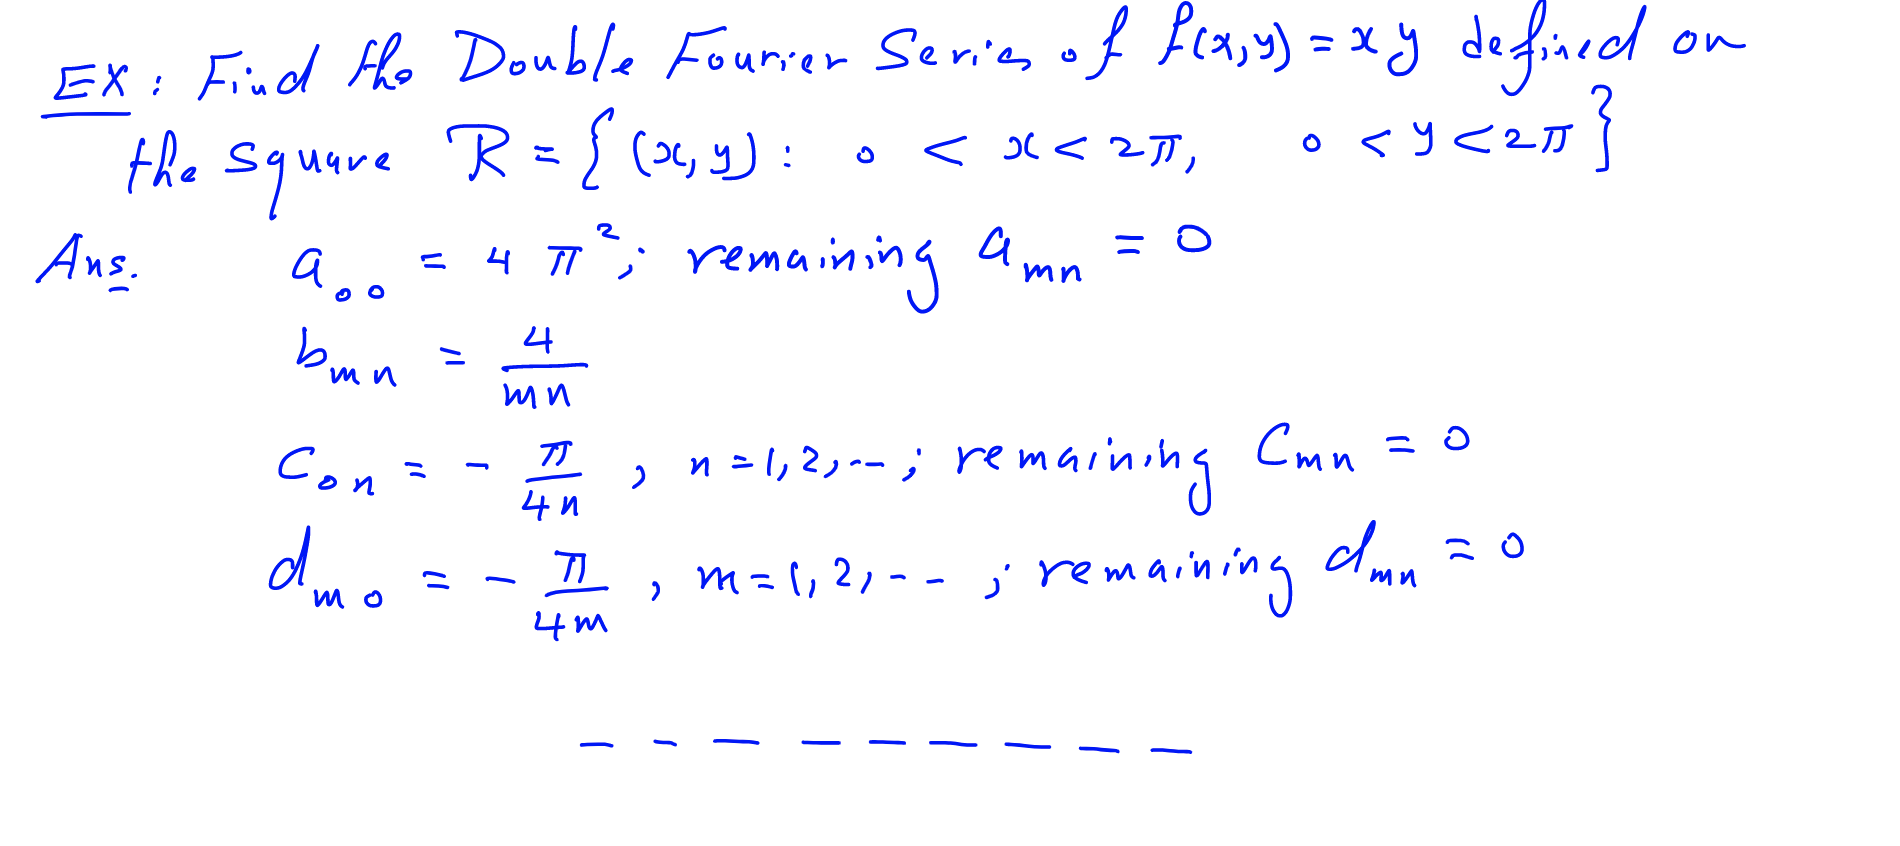 EX: Find the Double Fourier Series of f(x,y) = xy defined on
the square R = { (x,y) : 0 < x < 2π, 0 < y < 2π }
Ans. a₀₀ = 4π²; remaining aₘₙ = 0
bₘₙ = 4/mn
C₀ₙ = - π/4n , n = 1, 2, -- ; remaining Cₘₙ = 0
dₘ₀ = - π/4m , m = 1, 2, -- ; remaining dₘₙ = 0